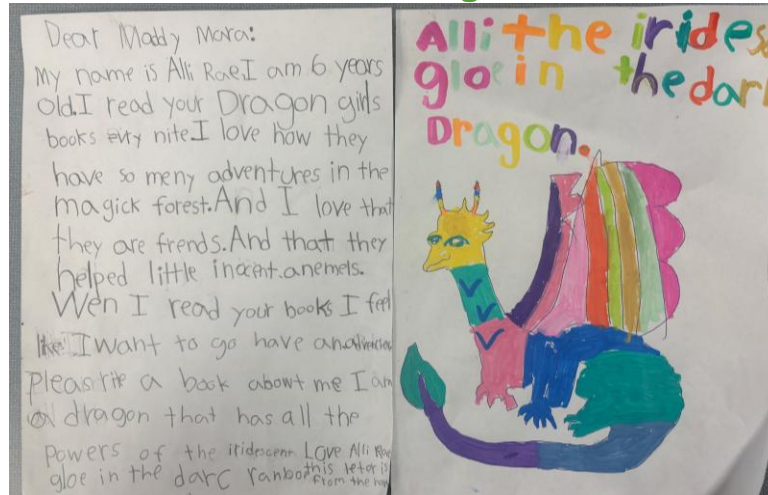 Dear Maddy Mara:
My name is Alli Rae.I am 6 years
old.I read your Dragon girls
books evry nite.I love how they
have so meny adventures in the
magick forest.And I love that
they are frends.And that they
helped little inocent.anemels.
Wen I read your books I feel
like I want to go have an
Pleas rite a book abowt me I am
a dragon that has all the
Powers of the iridescenn Love Alli Rae
gloe in the darc ranbo this leter is
from the
Alli the irides
gloe in the dar
Dragon.